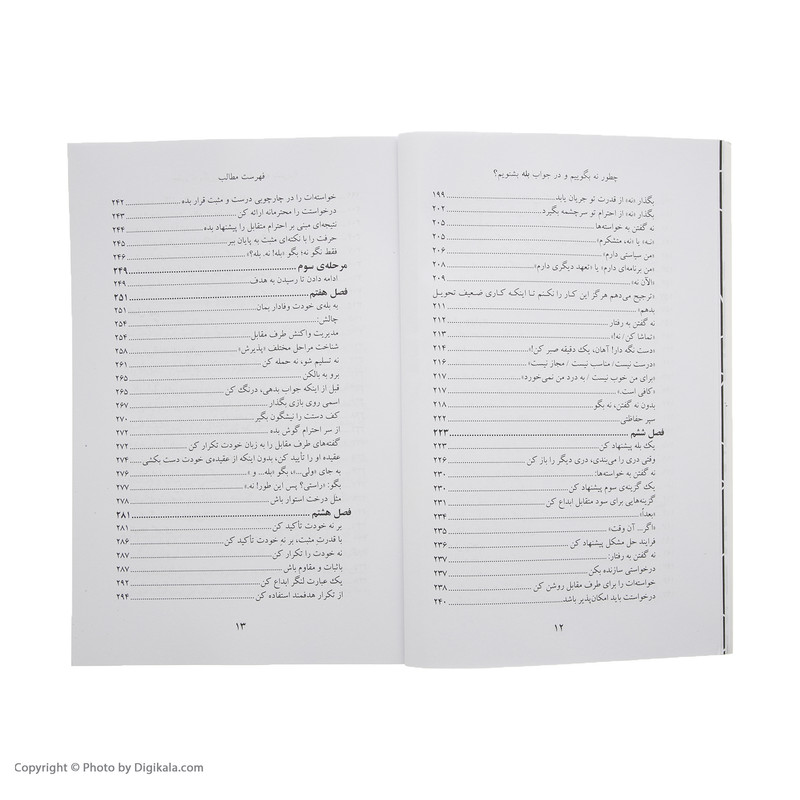 چطور نه بگوییم و در جواب بله بشنویم؟
بگذار «نه» از قدرت تو جریان یابد ۱۹۹
بگذار «نه» از احترام تو سرچشمه بگیرد ۲۰۲
نه گفتن به خواسته‌ها ۲۰۵
«نه» یا «نه، متشکرم» ۲۰۵
«من سیاستی دارم» ۲۰۶
«من برنامه‌ای دارم» یا «تعهد دیگری دارم» ۲۰۸
«الآن نه» ۲۰۹
«ترجیح می‌دهم هرگز این کار را نکنم تا اینکه کاری ضعیف تحویل
بدهم» ۲۱۱
نه گفتن به رفتار ۲۱۲
«تماشا کن / نه!» ۲۱۳
«دست نگه دار! آهان، یک دقیقه صبر کن!» ۲۱۴
«درست نیست / مناسب نیست / مجاز نیست» ۲۱۶
«برای من خوب نیست / به درد من نمی‌خورد» ۲۱۷
«کافی است.» ۲۱۷
بدون نه گفتن، نه بگو ۲۱۸
سپر حفاظتی ۲۲۲
فصل ششم ۲۲۳
یک بله پیشنهاد کن ۲۲۳
وقتی دری را می‌بندی، دری دیگر را باز کن ۲۲۶
نه گفتن به خواسته‌ها: ۲۳۰
یک گزینه‌ی سوم پیشنهاد کن ۲۳۰
گزینه‌هایی برای سود متقابل ابداع کن ۲۳۱
«بعداً» ۲۳۴
«اگر... آن وقت» ۲۳۵
فرایند حل مشکل پیشنهاد کن ۲۳۶
نه گفتن به رفتار: ۲۳۷
درخواستی سازنده بکن ۲۳۷
خواسته‌ات را برای طرف مقابل روشن کن ۲۳۸
درخواستت باید امکان‌پذیر باشد ۲۴۰
۱۲
فهرست مطالب
خواسته‌ات را در چارچوبی درست و مثبت قرار بده ۲۴۲
درخواستت را محترمانه ارائه کن ۲۴۳
نتیجه‌ای مبنی بر احترام متقابل را پیشنهاد بده ۲۴۴
حرفت را با نکته‌ای مثبت به پایان ببر ۲۴۵
فقط نگو نه؛ بگو «بله! نه. بله؟» ۲۴۶
مرحله‌ی سوم ۲۴۹
ادامه دادن تا رسیدن به هدف ۲۴۹
فصل هفتم ۲۵۱
به بله‌ی خودت وفادار بمان ۲۵۱
چالش ۲۵۴
مدیریت واکنش طرف مقابل ۲۵۴
شناخت مراحل مختلف «پذیرش» ۲۵۸
نه تسلیم شو، نه حمله کن ۲۶۱
برو به بالکن ۲۶۵
قبل از اینکه جواب بدهی، درنگ کن ۲۶۵
اسمی روی بازی بگذار ۲۶۷
کف دستت را نیشگون بگیر ۲۷۰
از سر احترام گوش بده ۲۷۲
گفته‌های طرف مقابل را به زبان خودت تکرار کن ۲۷۲
عقیده او را تأیید کن، بدون اینکه از عقیده‌ی خودت دست بکشی ۲۷۴
به جای «ولی...»، بگو «بله... و » ۲۷۶
بگو: «راستی؟ پس این طور! نه.» ۲۷۷
مثل درخت استوار باش ۲۷۸
فصل هشتم ۲۸۱
بر نه خودت تأکید کن ۲۸۱
با قدرت مثبت، بر نه خودت تأکید کن ۲۸۶
نه خودت را تکرار کن ۲۸۷
باثبات و مقاوم باش ۲۸۷
یک عبارت لنگر ابداع کن ۲۹۲
از تکرار هدفمند استفاده کن ۲۹۴
۱۳
Copyright © Photo by Digikala.com